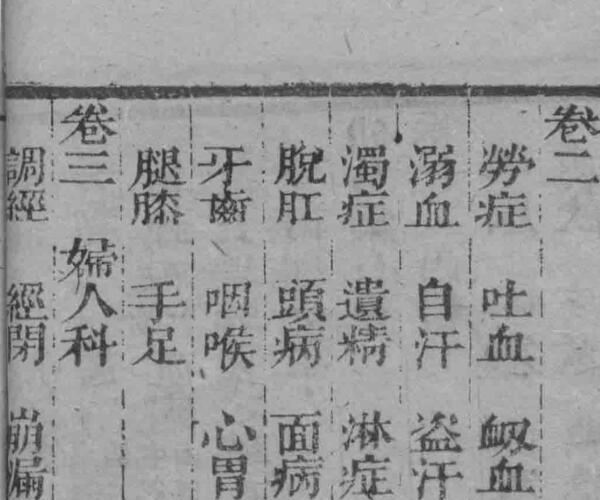 卷二
勞症 吐血 衂血
溺血 自汗 盗汗
濁症 遺精 淋症
脫肛 頭病 面病
牙齒 咽喉 心胃
腿膝 手足
卷三 婦人科
調經 經閉 崩漏